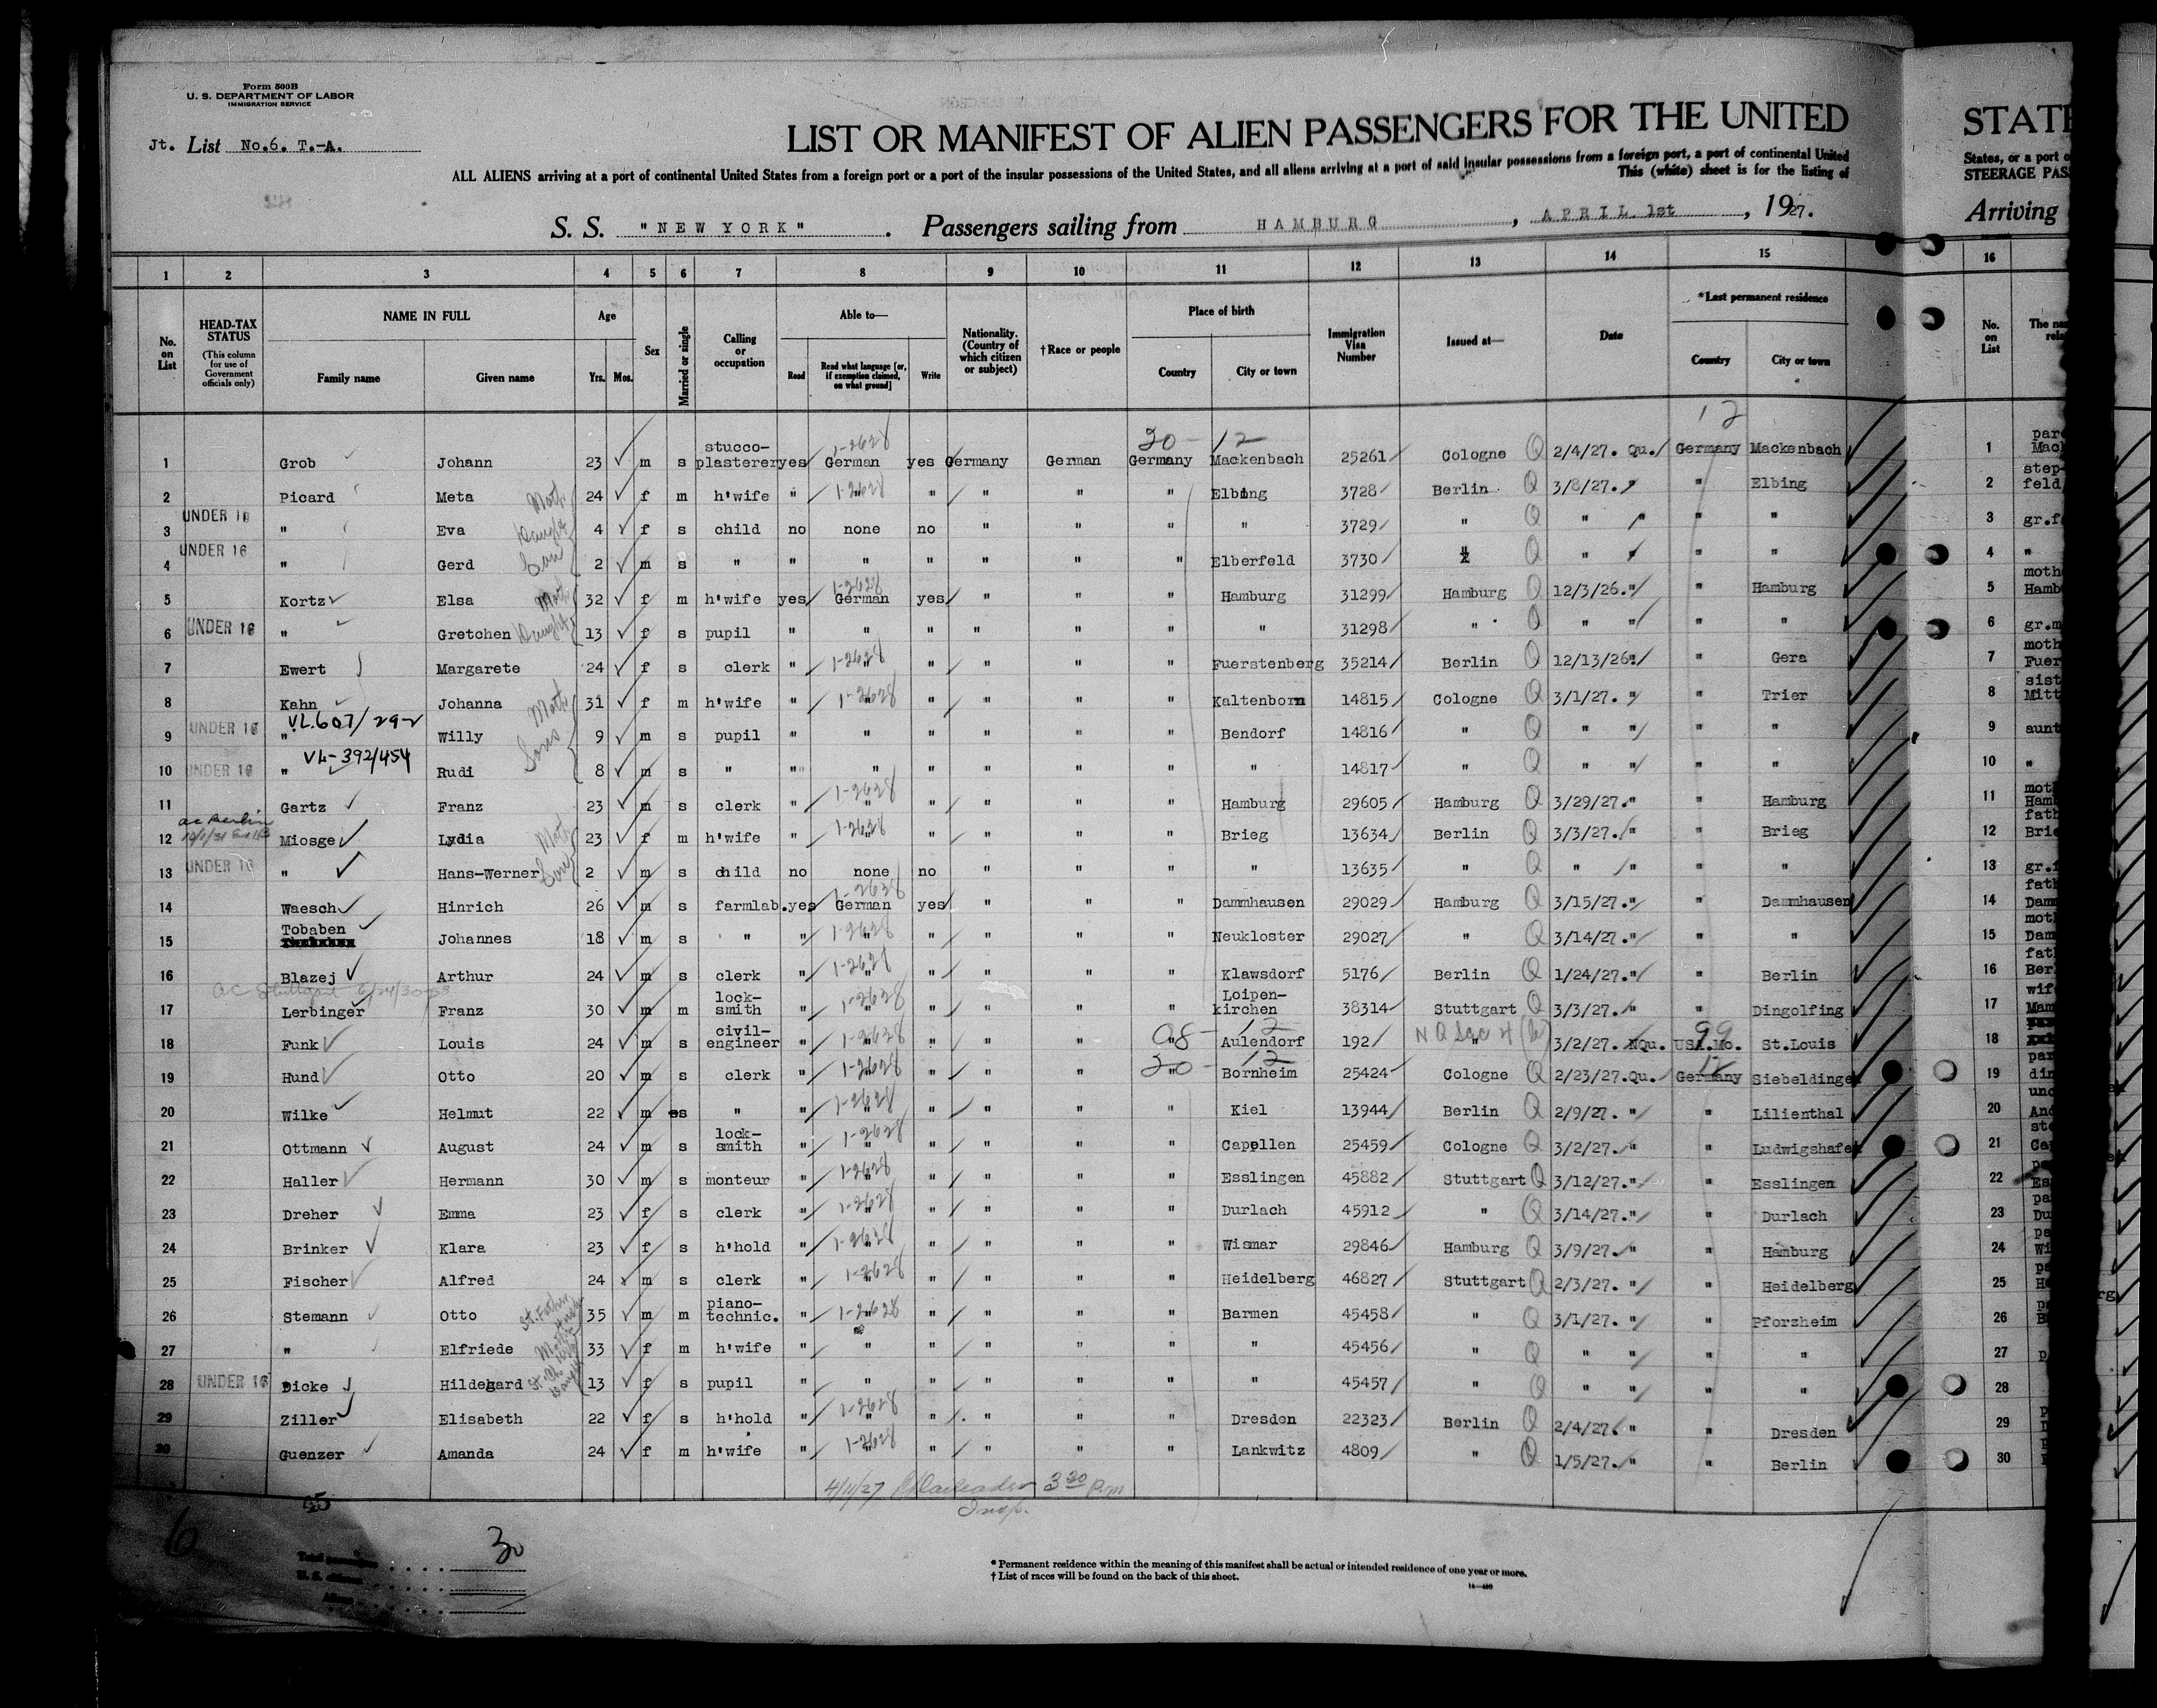 Form 500B
U. S. DEPARTMENT OF LABOR
IMMIGRATION SERVICE
Jt. List No.6. T.-A.
LIST OR MANIFEST OF ALIEN PASSENGERS FOR THE UNITED
STATE
ALL ALIENS arriving at a port of continental United States from a foreign port or a port of the insular possessions of the United States, and all aliens arriving at a port of said insular possessions from a foreign port, a port of continental United
States, or a port o
This (white) sheet is for the listing of
STEERAGE PAS
S. S. "NEW YORK" . Passengers sailing from HAMBURG , APRIL 1st , 1927.
Arriving
1 2 3 4 5 6 7 8 9 10 11 12 13 14 15 16
No. on List
HEAD-TAX STATUS
(This column for use of Government officials only)
NAME IN FULL
Family name Given name
Age
Yrs. Mos.
Sex
Married or single
Calling or occupation
Able to—
Read
Read what language [or, if exemption claimed, on what ground]
Write
Nationality. (Country of which citizen or subject)
†Race or people
Place of birth
Country City or town
Immigration Visa Number
Issued at—
Date
*Last permanent residence
Country City or town
No. on List
20- 12 12
1 Grob Johann 23 m s stucco-plasterer yes 1-2628 German yes Germany German Germany Mackenbach 25261 Cologne Q 2/4/27. Qu. Germany Mackenbach 1
2 Picard Meta Moth 24 f m h'wife " 1-2628 " " " " " Elbing 3728 Berlin Q 3/8/27. " " Elbing 2
3 UNDER 16 " Eva Daught 4 f s child no none no " " " " 3729 " Q " " " " 3 gr.f
4 UNDER 16 " Gerd Son 2 m s " " " " " " " Elberfeld 3730 " Q " " " " 4 "
5 Kortz Elsa Moth 32 f m h'wife yes 1-2628 German yes " " " Hamburg 31299 Hamburg Q 12/3/26. " " Hamburg 5
6 UNDER 16 " Gretchen Daught 13 f s pupil " " " " " " " 31298 " Q " " " " 6 gr.m
7 Ewert Margarete 24 f s clerk " 1-2628 " " " " " Fuerstenberg 35214 Berlin Q 12/13/26. " " Gera 7
8 Kahn Johanna Moth 31 f m h'wife " 1-2628 " " " " " Kaltenborn 14815 Cologne Q 3/1/27. " " Trier 8
VL.607/292
9 UNDER 16 " Willy Sons 9 m s pupil " " " " " " Bendorf 14816 " Q " " " " 9 aunt
VL-392/454
10 UNDER 16 " Rudi 8 m s " " " " " " " " 14817 " Q " " " " 10 "
11 Gartz Franz 23 m s clerk " 1-2628 " " " " " Hamburg 29605 Hamburg Q 3/29/27. " " Hamburg 11
ac Berlin
12 Miosge Lydia Moth 23 f m h'wife " 1-2628 " " " " " Brieg 13634 Berlin Q 3/3/27. " " Brieg 12
13 UNDER 16 " Hans-Werner Son 2 m s child no none no " " " " 13635 " Q " " " " 13
14 Waesch Hinrich 26 m s farmlab. yes 1-2628 German yes " " " Dammhausen 29029 Hamburg Q 3/15/27. " " Dammhausen 14
15 Tobaben Johannes 18 m s " " 1-2628 " " " " " Neukloster 29027 " Q 3/14/27. " " " 15
16 Blazej Arthur 24 m s clerk " 1-2628 " " " " " Klawsdorf 5176 Berlin Q 1/24/27. " " Berlin 16
ac Stuttgart 6/24/30
17 Lerbinger Franz 30 m m lock-smith " 1-2628 " " " " " Loipen-kirchen 38314 Stuttgart Q 3/3/27. " " Dingolfing 17
08- 12 99
18 Funk Louis 24 m s civil-engineer " 1-2628 " " " " " Aulendorf 192 " N Q Sec 4 (b) 3/2/27. NQu. USA.Mo. St.Louis 18
20- 12 12
19 Hund Otto 20 m s clerk " 1-2628 " " " " " Bornheim 25424 Cologne Q 2/23/27.Qu. Germany Siebeldingen 19
20 Wilke Helmut 22 m s " " 1-2628 " " " " " Kiel 13944 Berlin Q 2/9/27. " " Lilienthal 20
21 Ottmann August 24 m s lock-smith " 1-2628 " " " " " Capellen 25459 Cologne Q 3/2/27. " " Ludwigshafen 21
22 Haller Hermann 30 m s monteur " 1-2628 " " " " " Esslingen 45882 Stuttgart Q 3/12/27. " " Esslingen 22
23 Dreher Emma 23 f s clerk " 1-2628 " " " " " Durlach 45912 " Q 3/14/27. " " Durlach 23
24 Brinker Klara 23 f s h'hold " 1-2628 " " " " " Wismar 29846 Hamburg Q 3/9/27. " " Hamburg 24
25 Fischer Alfred 24 m s clerk " 1-2628 " " " " " Heidelberg 46827 Stuttgart Q 2/3/27. " " Heidelberg 25
26 Stemann Otto St. Father 35 m m piano-technic. " 1-2628 " " " " " Barmen 45458 " Q 3/1/27. " " Pforzheim 26
27 " Elfriede Mother 33 f m h'wife " " " " " " " 45456 " Q " " " " 27
28 UNDER 16 Dicke Hildegard 13 f s pupil " " " " " " " 45457 " Q " " " " 28
29 Ziller Elisabeth 22 f s h'hold " 1-2628 " " " " " Dresden 22323 Berlin Q 2/4/27. " " Dresden 29
30 Guenzer Amanda 24 f m h'wife " 1-2628 " " " " " Lankwitz 4809 " Q 1/5/27. " " Berlin 30
4/11/27 3 30 P.m
Insp.
6
30
Total passengers
U. S. citizens
Aliens
* Permanent residence within the meaning of this manifest shall be actual or intended residence of one year or more.
† List of races will be found on the back of this sheet.